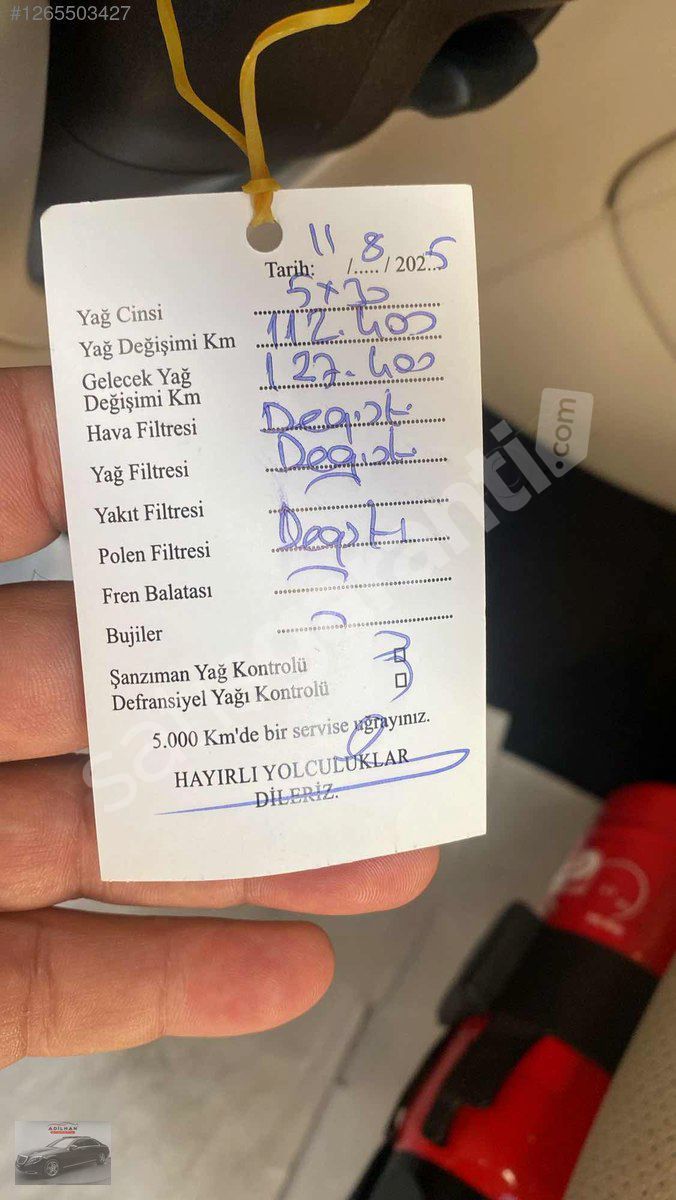 #1265503427
Tarih: 11 / 8 / 2025
Yağ Cinsi 5x30
Yağ Değişimi Km 112.400
Gelecek Yağ
Değişimi Km 127.400
Hava Filtresi Değişti
Yağ Filtresi Değişti
Yakıt Filtresi
Polen Filtresi Değişti
Fren Balatası
Bujiler
Şanzıman Yağ Kontrolü
Defransiyel Yağı Kontrolü
5.000 Km'de bir servise uğrayınız.
HAYIRLI YOLCULUKLAR
DİLERİZ.
sahibinden.com
ADİLHAN